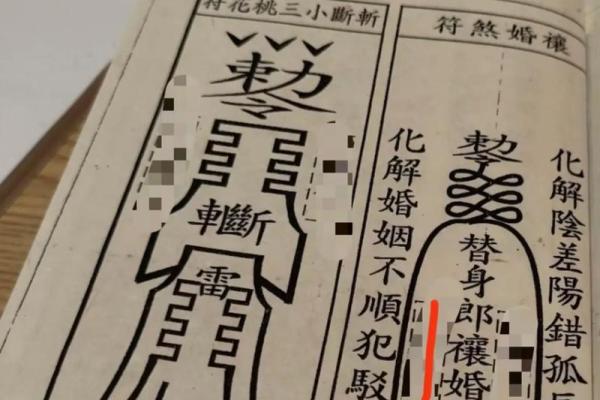 禳婚煞符
化解陰差陽錯孤
勅令
替身郎禳婚
化解婚姻不順犯駁
斬斷小三桃花符
勅令
斷
雷